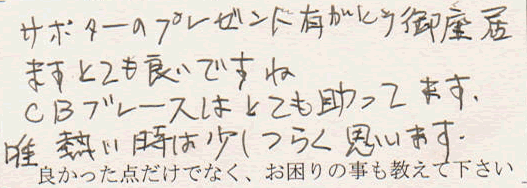 サポターのプレゼントに有がとう御座居
ますとても良いですね
CBブレースはとても助ってます.
唯熱い時は少しつらく思います.
良かった点だけでなく、お困りの事も教えて下さい